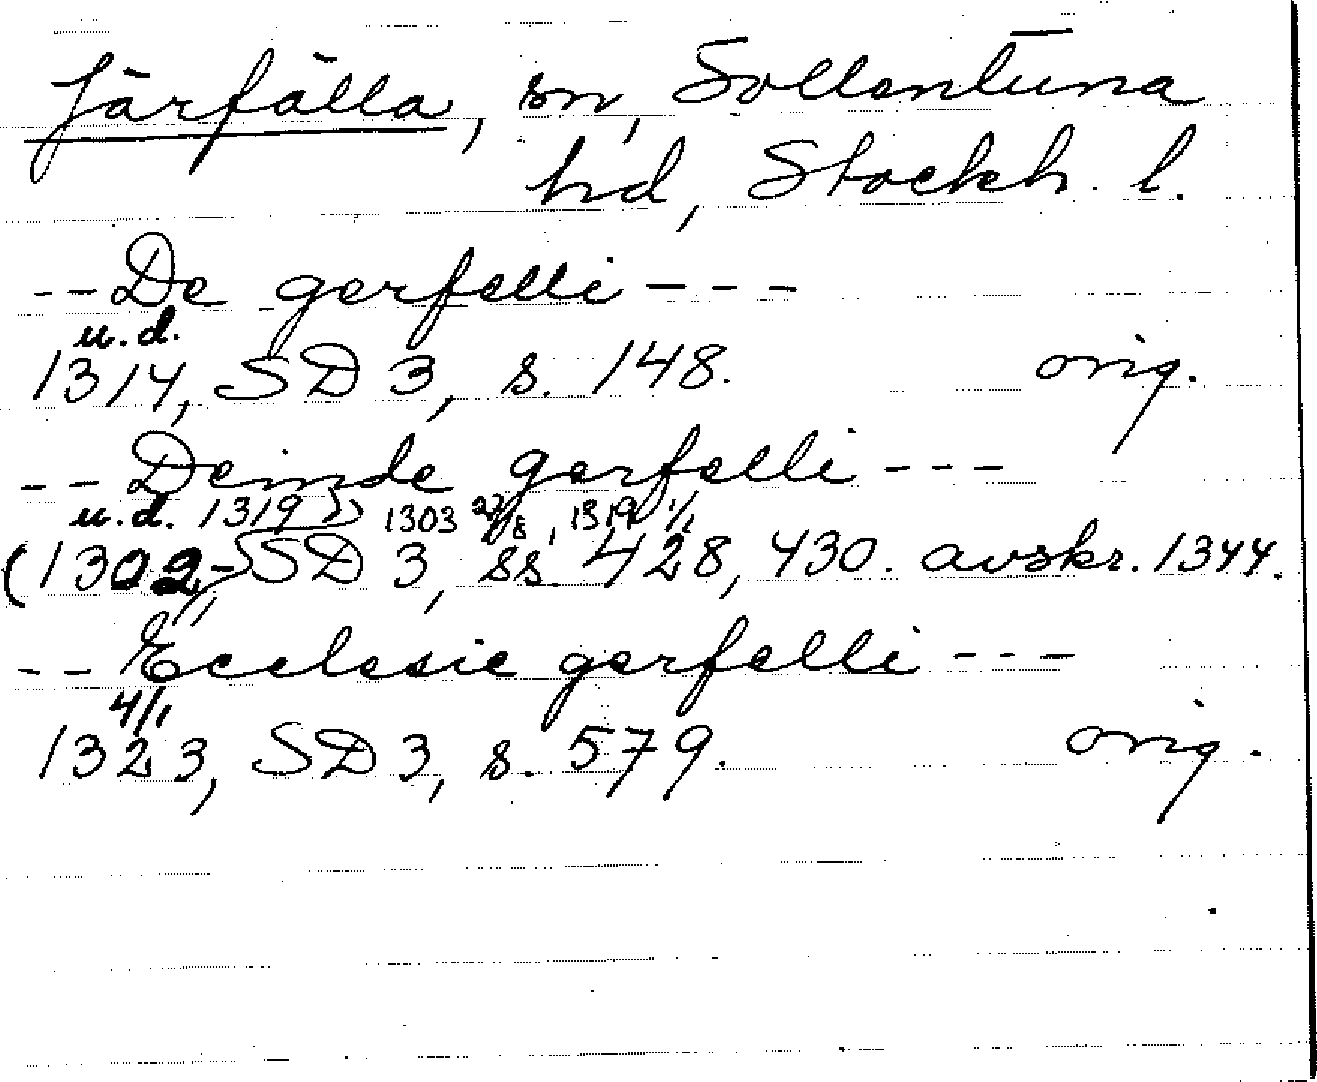 Järfälla, sn, Sollentuna
hd, Stockh. l.
-- De gerfelli ---
u. d.
1314, SD 3, s. 148. orig.
-- Deinde gerfelli ---
u. d. 1319) 1303 27/8, 1319 1/1
(1302-, SD 3, ss. 428, 430. avskr. 1344.
-- Ecclesie gerfelli ---
4/1
1323, SD 3, s. 579. orig.